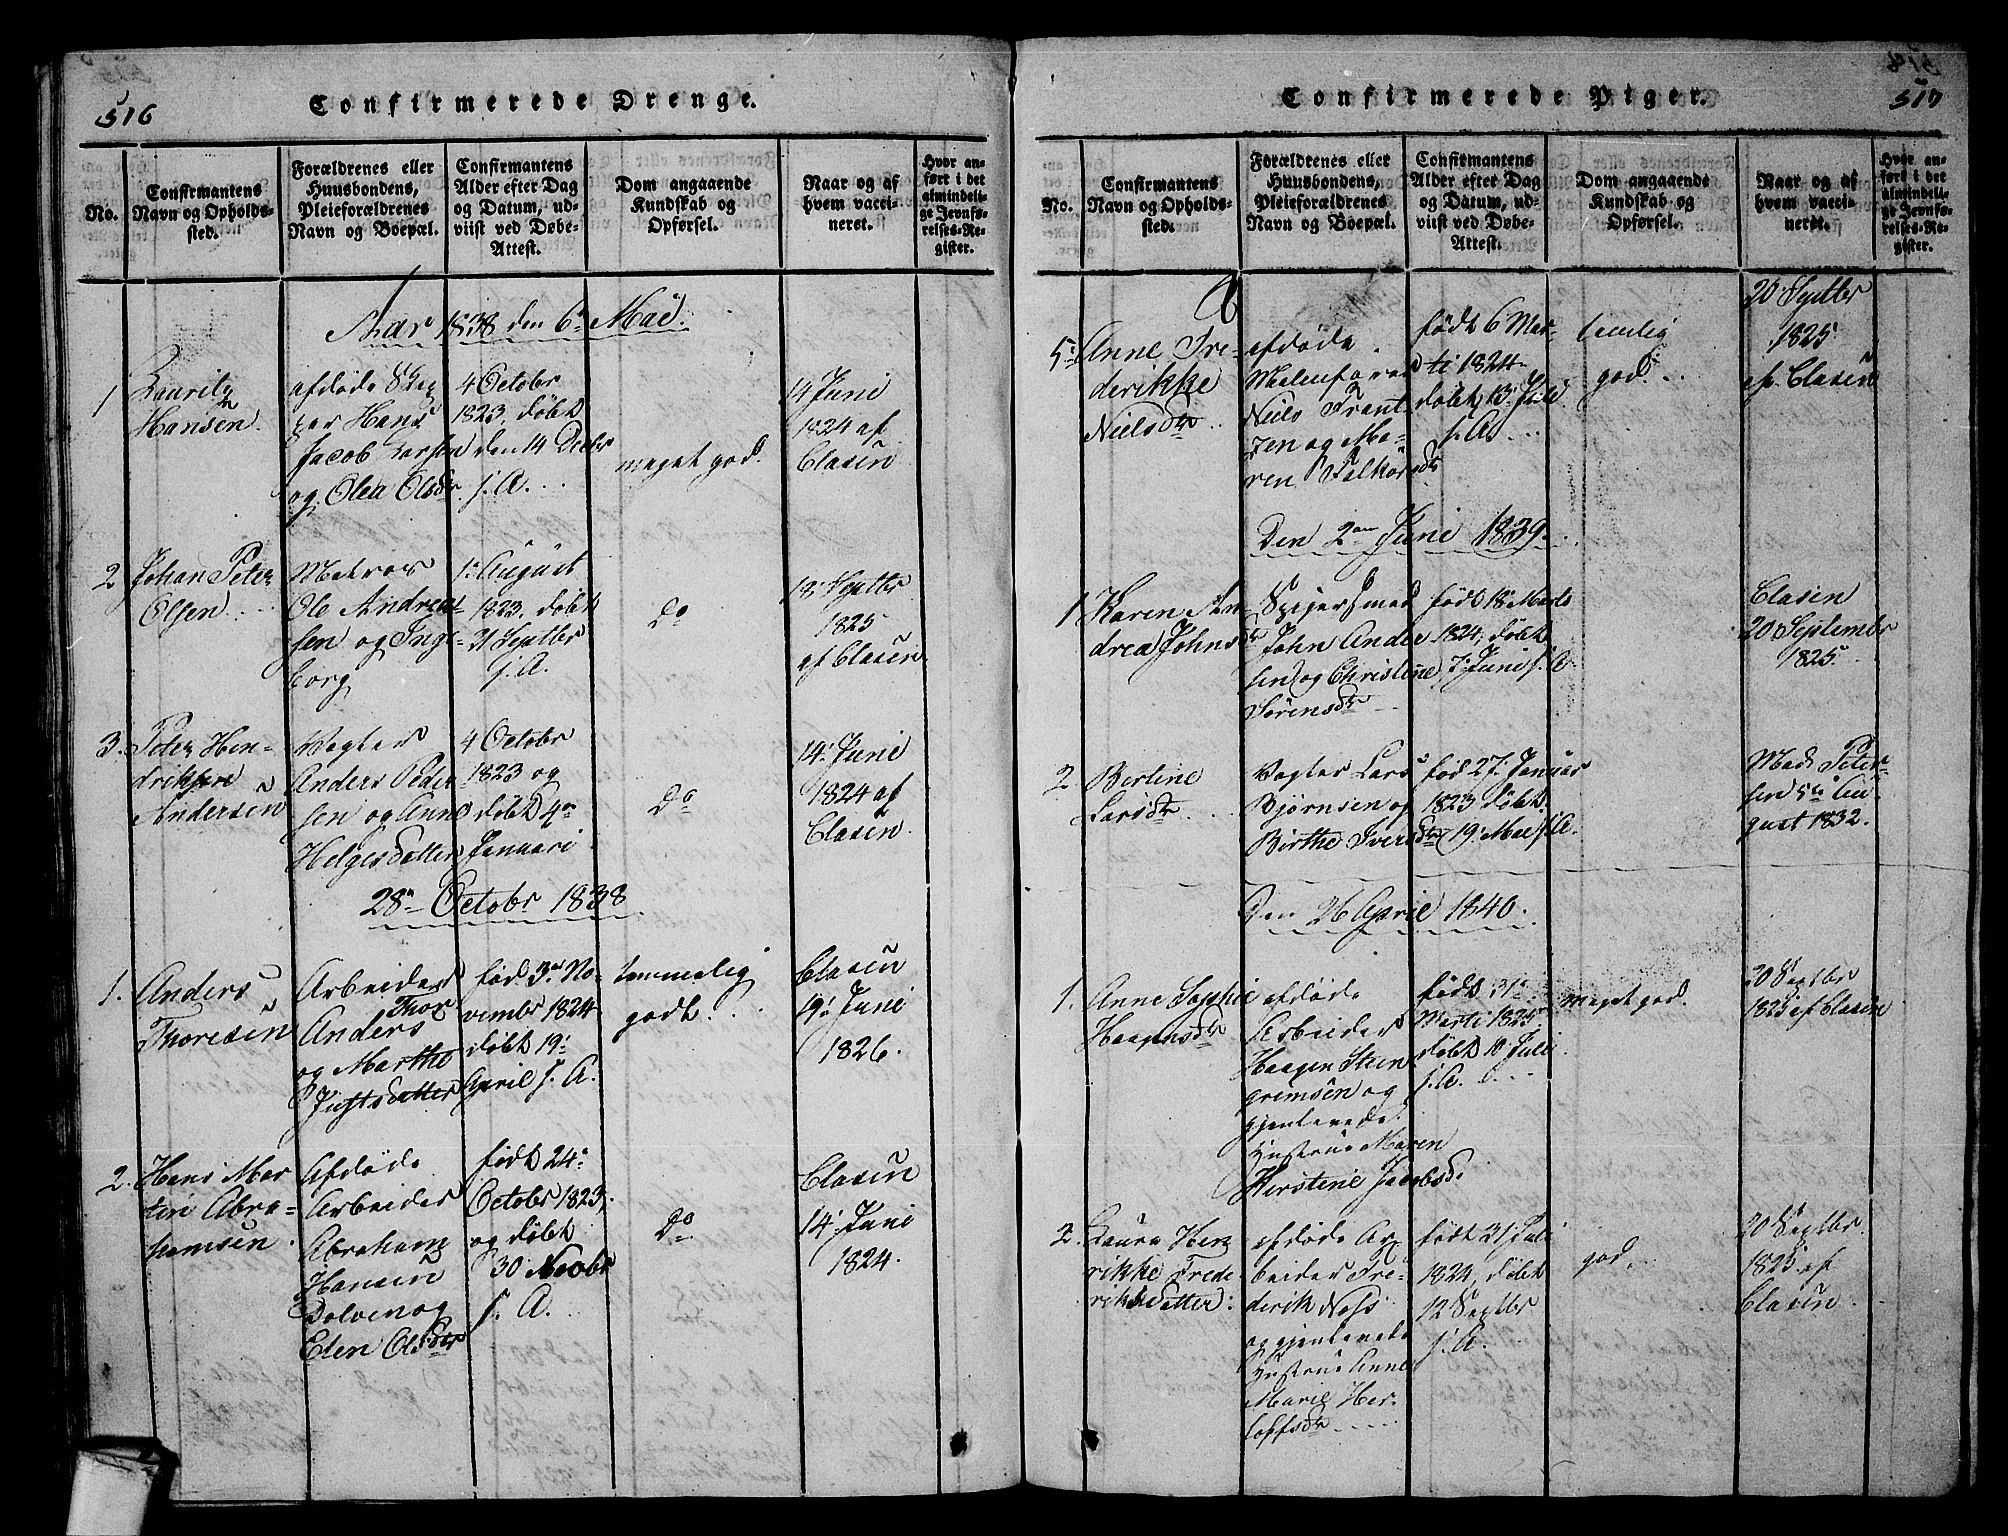 516
Confirmerede Drenge.
No.
Confirmantens
Navn og Opholds-
sted.
Forældrenes eller
Huusbondens,
Pleieforældrenes
Navn og Boepæl.
Confirmantens
Alder efter Dag
og Datum, ud-
viist ved Døbe-
Attest.
Dom angaaende
Kundskab og
Opførsel.
Naar og af
hvem vacci-
neret.
Hvor an-
ført i det
almindeli-
ge Jevnfø-
relses-Re-
gister.
Aar 1838 den 6te Mai.
1
Lauritz
Hansen
afdøde
Hans
Jacob Larsen
og Olea Olsdr
4 Octobr
1823, døbt
den 14 Decbr
s. A.
meget god.
14 Juni
1824 af
Clasen
2
Johan Peter
Olsen
Matros
Ole Andrea-
sen og Inge-
borg
1. August
1823. døbt
21 Septbr
s. A.
Do
18. Septbr
1825
af Clasen
3.
Peter Hen-
drikken
Andersen
Vogter
Anders Peder
sen og Anne
Helgesdatter
4 Octobr
1823 og
døbt 4de
Januari
Do
14. Juni
1824 af
Clasen.
28de Octobr 1838
1.
Anders
Thoresen
Arbeider
Thor
Anders
og Marthe
Justsdatter
født 3de No-
vembr 1824
døbt 19.
April s. A.
temmelig
godt.
Clasen
19. Juni
1826.
2.
Hans Mar
tin Abra-
hamsen
Afdøde
Arbeider
Abraham
Hansen
Dolven og
Elen Olsdr
født 24de
Octobr 1823,
og døbt
30 Novbr
s. A.
Do
Clasen
14. Juni
1824.
517
Confirmerede Piger.
No.
Confirmantens
Navn og Opholds-
sted.
Forældrenes eller
Huusbondens,
Pleieforældrenes
Navn og Boepæl.
Confirmantens
Alder efter Dag
og Datum, ud-
viist ved Døbe-
Attest.
Dom angaaende
Kundskab og
Opførsel.
Naar og af
hvem vacci-
neret.
Hvor an-
ført i det
almindeli-
ge Jevnfø-
relses-Re-
gister.
5
Anne Fre-
derikke
Nielsdr
afdøde
Niels Frant
zen og Ma-
ren Falkorsdr
født 6 Mar-
ti 1824
døbt, 13. Juli
s. A.
temlig
god.
20 Septbr
1825
af Clasen
Den 2den Juni 1839.
1.
Karen An-
drea Johnsdr
Spigersmed
John Ander
sen og Christine
Sørensdr
født 18. Marts
1824, døbt
7. Juni s. A
Clasen
20 Septembr
1825.
2
Bertine
Larsdr
Vogter Lars
Bjørnsen og
Birthe Iversdr
født 27. Januar
1823 døbt
19. Mai s. A.
Mads Peter-
sen 5te Au-
gust 1832.
Den 26 April 1840.
1.
Anne Sophie
Haagensdr
afdøde
Arbeider
Haagen Steen
grimsen og
gjenlevende
Hustrue Maren
Kirstine Jacobsd.
født 31te
Marti 1825
døbt 10 Juli
s. A.
meget god.
20 Septbr
1825 af Clasen
2.
Laura Hen
rikke Frede
riksdatter.
afdøde Ar
beider Fre-
derik Noss
og gjenlevende
Hustrue Anne
Marie Her-
loffsdr
født 31 Juli
1824, døbt
12 Septbr
s. A.
god.
20 Septbr.
1825 af
Clasen